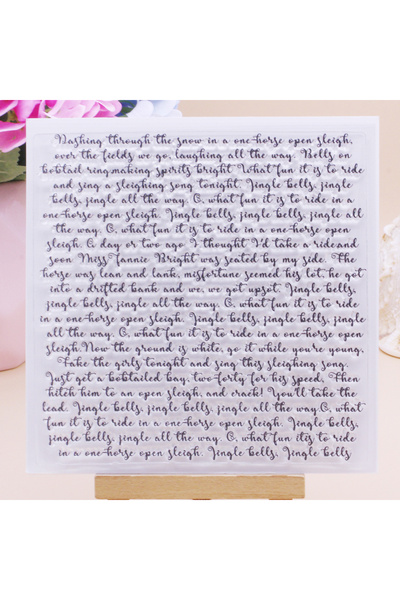 Dashing through the snow in a one-horse open sleigh,
over the fields we go, laughing all the way. Bells on
bobtail ring,making spirits bright What fun it is to ride
and sing a sleighing song tonight. Jingle bells, jingle
bells, jingle all the way. O, what fun it is to ride in a
one-horse open sleigh. Jingle bells, jingle bells, jingle all
the way. O, what fun it is to ride in a one-horse open
sleigh. A day or two ago I thought I'd take a rideand
soon Miss Fannie Bright was seated by my side. The
horse was lean and lank, misfortune seemed his lot, he got
into a drifted bank and we, we got upsot. Jingle bells,
jingle bells, jingle all the way. O, what fun it is to ride
in a one-horse open sleigh. Jingle bells, jingle bells, jingle
all the way. O, what fun it is to ride in a one-horse open
sleigh.Now the ground is white, go it while you're young.
Take the girls tonight and sing this sleighing song.
Just get a bobtailed bay, two-forty for his speed, Then
hitch him to an open sleigh, and crack! You'll take the
lead. Jingle bells, jingle bells, jingle all the way.O, what
fun it is to ride in a one-horse open sleigh. Jingle bells,
jingle bells, jingle all the way. O, what fun itis to ride
in a one-horse open sleigh. Jingle bells, Jingle bells